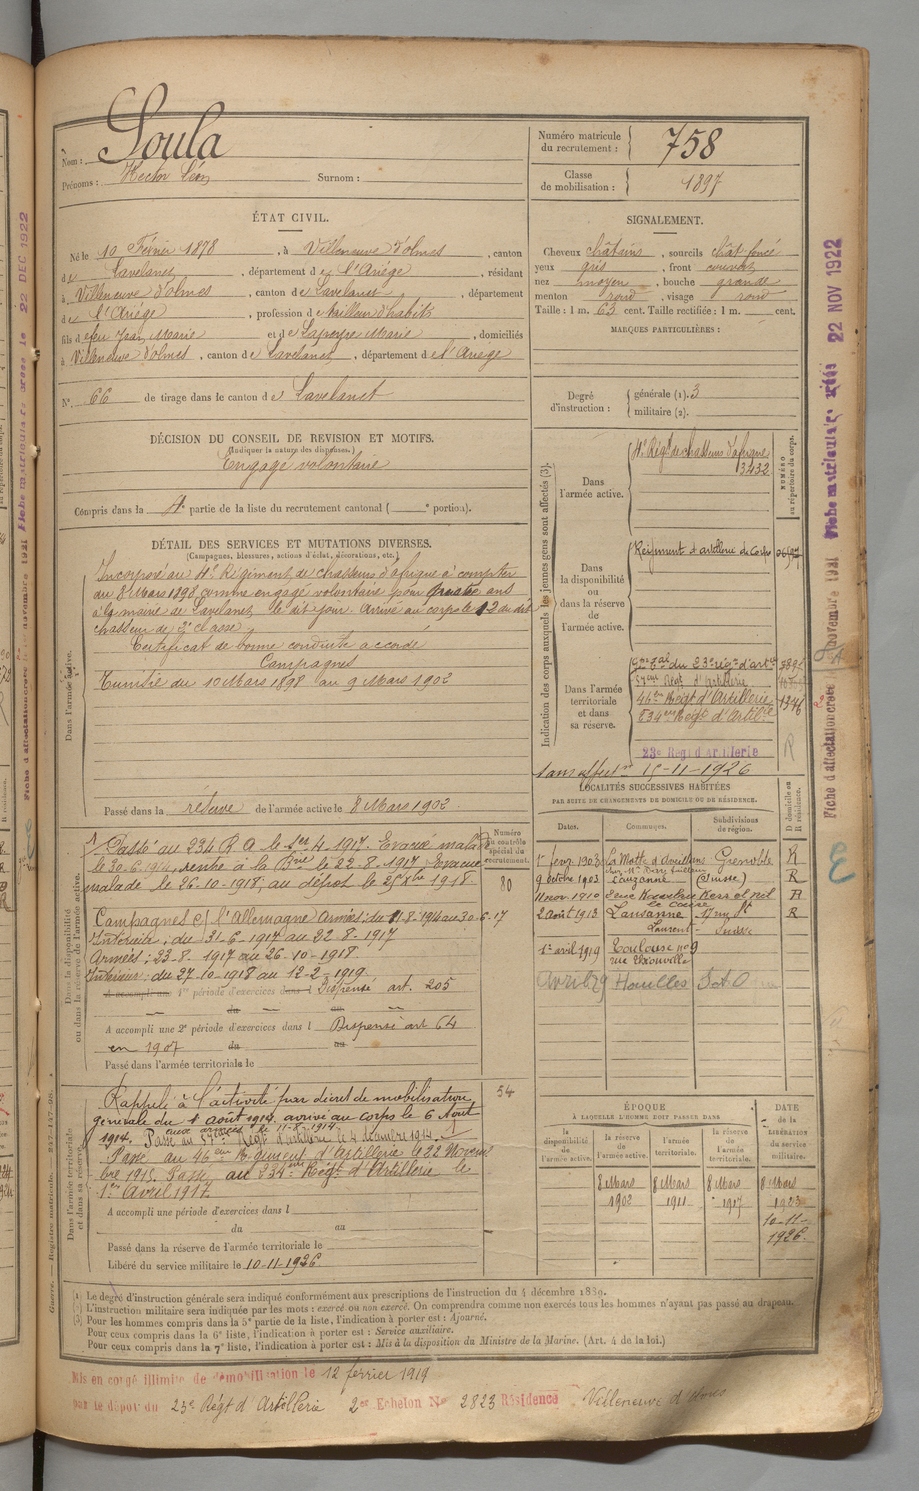 Nom : Soula
Prénoms : Hector Léon Surnom :
Numéro matricule du recrutement : 758
Classe de mobilisation : 1897
ÉTAT CIVIL.
Né le 10 Février 1878, à Villeneuve d'olmes, canton
de Lavelanet, département de l'Ariége, résidant
à Villeneuve d'olmes, canton de Lavelanet, département
de l'Ariége, profession de tailleur d'habits
fils de feu Jean Marie et de Lapeyre Marie, domiciliés
à Villeneuve d'olmes, canton de Lavelanet, département de l'Ariege
N° 66 de tirage dans le canton de Lavelanet
SIGNALEMENT.
Cheveux châtains, sourcils chât foncé
yeux gris, front couvert
nez moyen, bouche grande
menton rond, visage rond
Taille : 1 m. 63 cent. Taille rectifiée : 1 m. cent.
MARQUES PARTICULIÈRES :
Degré d'instruction : générale (1). 3
militaire (2).
DÉCISION DU CONSEIL DE REVISION ET MOTIFS.
(Indiquer la nature des dispenses.)
Engagé volontaire
Compris dans la 4e partie de la liste du recrutement cantonal ( e portion).
DÉTAIL DES SERVICES ET MUTATIONS DIVERSES.
(Campagnes, blessures, actions d'éclat, décorations, etc.)
Dans l'armée active.
Incorporé au 4e Régiment de chasseurs d'afrique à compter
du 8 Mars 1898 comme engagé volontaire pour quatre ans
à la mairie de Lavelanet le dit jour. Arrivé au corps le 12 du dit
chasseur de 2e classe.
Certificat de bonne conduite accordé
Campagnes
Tunisie du 10 Mars 1898 au 9 Mars 1902
Passé dans la réserve de l'armée active le 8 Mars 1902
Indication des corps auxquels les jeunes gens sont affectés (3).
NUMÉRO au répertoire du corps.
Dans l'armée active.
4e Régt de chasseurs d'afrique
3432
Dans la disponibilité ou dans la réserve de l'armée active.
Régiment d'artillerie de Corps
Dans l'armée territoriale et dans sa réserve.
du 23e régt d'artie
57eme Régt d'Artillerie
46eme Régt d'Artillerie 1346
234eme Régt d'Artillie
23e Régt d'Artillerie
sans affecton 15-11-1926
LOCALITÉS SUCCESSIVES HABITÉES
PAR SUITE DE CHANGEMENTS DE DOMICILE OU DE RÉSIDENCE.
Dates. Communes. Subdivisions de région. D domicile ou R résidence.
1er févr 1903 La Motte d'aveillans Grenoble R
9 octobre 1903 Lauzanne (Suisse) R
11 nov. 1910
2 août 1913 Lausanne R
1er avril 1919 Toulouse no 9
Avril 29 Houilles S.et.O
Dans la disponibilité ou dans la réserve de l'armée active.
Numéro au contrôle spécial du recrutement.
80
Passé au 234 R A le 1er-4-1917. Evacué malade
le 30-6-1917, rentré à la Bie le 22-8-1917 Evacué
malade le 26-10-1918, au dépot le 25 Xbre 1918.
Campagnes c/ l'Allemagne Armées : du 11-8-1914 au 30-6-17
Intérieur ; du 31-6-1917 au 22-8-1917
Armées ; 23-8-1917 au 26-10-1918.
Intérieur : du 27-10-1918 au 12-2-1919.
A accompli une 1re période d'exercices dans l Dispensé art. 205
du au
A accompli une 2e période d'exercices dans l Dispensé art 64
en 1907 du au
Passé dans l'armée territoriale le
Dans l'armée territoriale et dans sa réserve.
54
Rappelé à l'activité par décret de mobilisation
générale du 1 août 1914 arrivé au corps le 6 Août
1914. aux armées le 11-8-1914. Passé au 57eme Régt d'artillerie le 4 décembre 1914.
Passé au 46eme Régiment d'Artillerie le 22 Novem
bre 1915. Passé au 234eme Régt d'Artillerie le
1er Avril 1917.
A accompli une période d'exercices dans l
du au
Passé dans la réserve de l'armée territoriale le
Libéré du service militaire le 10-11-1926
ÉPOQUE
À LAQUELLE L'HOMME DOIT PASSER DANS
la disponibilité de l'armée active. la réserve de l'armée active. l'armée territoriale. la réserve de l'armée territoriale.
DATE de la LIBÉRATION du service militaire.
8 Mars 1902 8 Mars 1911 8 Mars 1917 8 Mars 1923
10-11-1926.
(1) Le degré d'instruction générale sera indiqué conformément aux prescriptions de l'instruction du 4 décembre 1889.
(2) L'instruction militaire sera indiquée par les mots : exercé ou non exercé. On comprendra comme non exercés tous les hommes n'ayant pas passé au drapeau.
(3) Pour les hommes compris dans la 5e partie de la liste, l'indication à porter est : Ajourné.
Pour ceux compris dans la 6e liste, l'indication à porter est : Service auxiliaire.
Pour ceux compris dans la 7e liste, l'indication à porter est : Mis à la disposition du Ministre de la Marine. (Art. 4 de la loi.)
Mis en congé illimité de démobilisation le 12 février 1919
par le dépôt du 23e Régt d'Artillerie 2e Echelon No 2823 Résidence Villeneuve d'Olmes
22 NOV 1922
22 DEC 1922